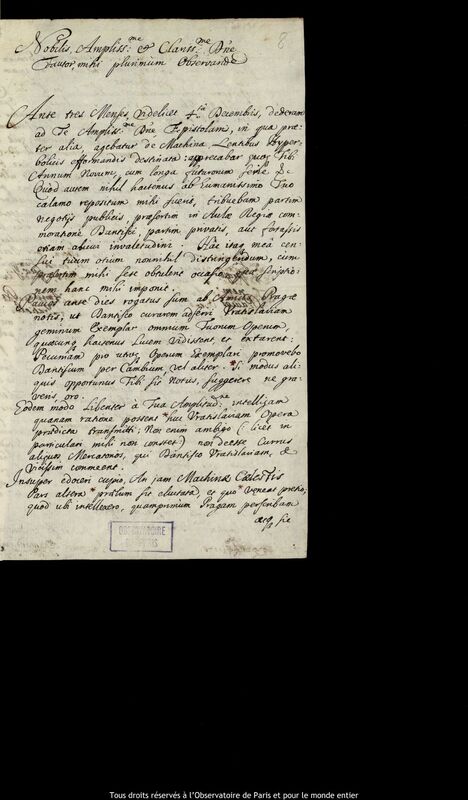 8
Nobilis, Ampliss:me & Clariss:me Dne
Fautor mihi plurimum Observande
Ante tres Menses, videlicet 4ta Decembris, dederam
ad Te Ampliss:me Dne Epistolam, in qua præ-
ter alia, agebatur de Machina Lentibus Hyper-
bolicis efformandis destinata: apprecabar quoq Tibi
Annum Novum, cum longa futurorum serie &c
Quod autem nihil hactenus ab humanissimo Tuo
calamo repositum mihi fuerit, tribuebam partim
negotijs publicis, præsertim in Aulæ Regiæ com-
moratione Dantisci, partim privatis, aut forassis
etiam alicui invaletudini. Hâc itaq meâ cen-
sui tuum otium nonnihil distringendum, cum
præsertim mihi sese obtulerit occasio, quæ scriptio-
nem hanc mihi imponit.
Paucos ante dies rogatus sum ab Amicis Pragæ
notis, ut Dantisco curarem adferri Vratislaviam
geminum Exemplar omnium Tuorum Operum,
quæcunq hactenus Lucem vidissent, et extarent:
Pecuniam pro utroq Operum Exemplari promovebo
Dantiscum per Cambium, vel aliter. Si modus ali-
quis opportunus Tibi sit Notus, suggerere ne gra-
veris, oro.
Eodem modo Libenter à Tua Amplitud:ne intelligam
quanam ratione possent huc Vratislaviam Opera
prædicta transmitti: Non enim ambigo (licet in
particulari mihi non constet) non deesse Currus
aliquos Mercatorios, qui Dantisco Vratislaviam, &
vicissim commeent.
Insuper edoceri cupio, An jam Machinæ Cœlestis
Pars altera prælum sit eluctata? et quo veneat pretio,
quod ubi intellexero, quamprimum Pragam perscribam
atq sic
OBSERVATOIRE
DE PARIS
Tous droits réservés à l'Observatoire de Paris et pour le monde entier